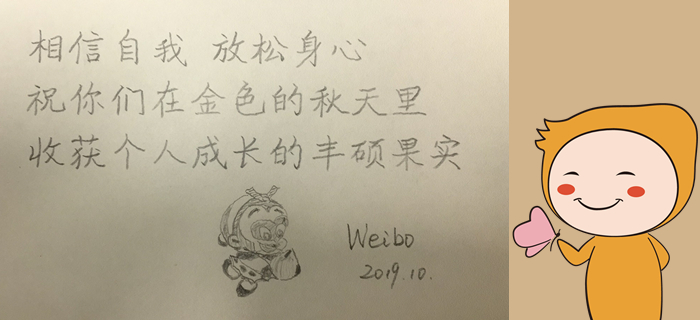 相信自我 放松身心
祝你们在金色的秋天里
收获个人成长的丰硕果实
Weibo
2019.10.